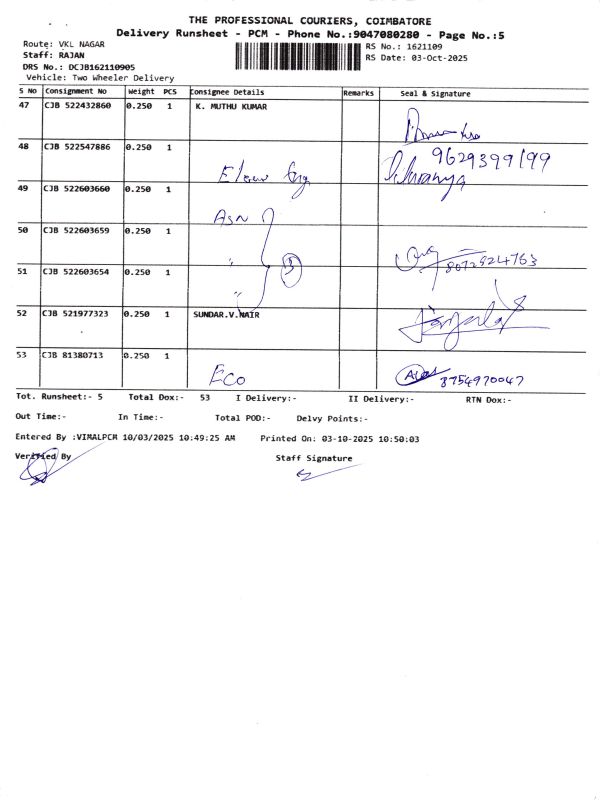 THE PROFESSIONAL COURIERS, COIMBATORE
Delivery Runsheet - PCM - Phone No.:9047080280 - Page No.:5
Route: VKL NAGAR
RS No.: 1621109
Staff: RAJAN
RS Date: 03-Oct-2025
DRS No.: DCJB162110905
Vehicle: Two Wheeler Delivery
S No Consignment No Weight PCS Consignee Details Remarks Seal & Signature
47 CJB 522432860 0.250 1 K. MUTHU KUMAR
48 CJB 522547886 0.250 1
9629399199
49 CJB 522603660 0.250 1
50 CJB 522603659 0.250 1
8072524763
51 CJB 522603654 0.250 1
3
52 CJB 521977323 0.250 1 SUNDAR.V.NAIR
53 CJB 81380713 0.250 1
ECO 8754970047
Tot. Runsheet:- 5 Total Dox:- 53 I Delivery:- II Delivery:- RTN Dox:-
Out Time:- In Time:- Total POD:- Delvy Points:-
Entered By :VIMALPCM 10/03/2025 10:49:25 AM Printed On: 03-10-2025 10:50:03
Verified By
Staff Signature